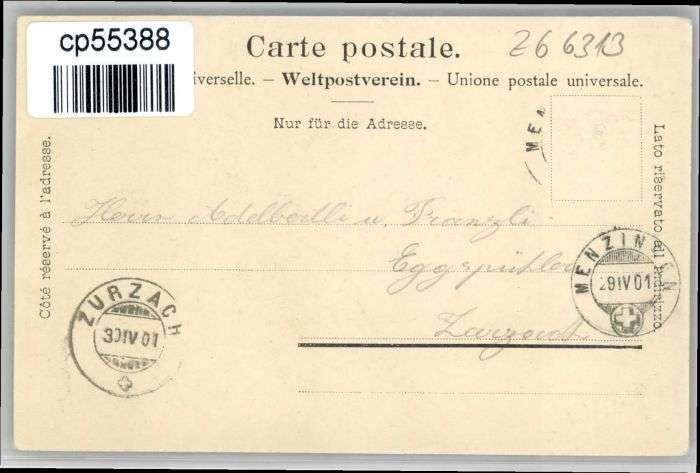 cp55388
Carte postale.
266313
iverselle. – Weltpostverein. – Unione postale universale.
Nur für die Adresse.
Côté réservé à l'adresse.
Lato riservato all'indirizzo.
MEN
Herrn Adelbertli u. Franzli
Zurzach
MENZINGEN
29IV01
ZURZACH
30IV01